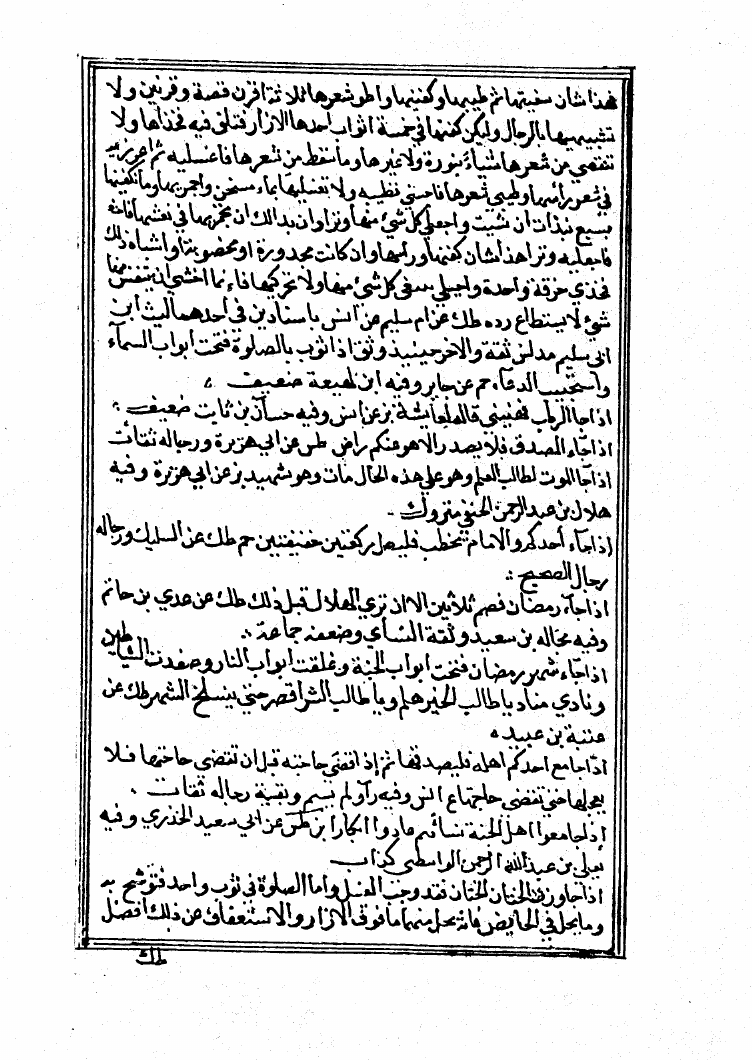 فهذا شأن سفلتها ثم طيبيها وكفنيها واطو شعرها ثلاثة اقرن قصة وقرنين ولا
تشبيهيها بالرجال وليكن كفنها في خمسة اثواب احدها الازار فتلقى فيه فخذاها ولا
تنقصي من شعرها شيئا بنورة ولا غيرها وما سقط من شعرها فاغسليه ثم اغرزيه
في شعر رأسها وطيبي شعرها فاحسني تطييبه ولا تغسليها بماء مسخن واجمريها وما تكفنيها
بسبع نبذات ان شئت واجعلي كل شيء منها وترا وان بدا لك ان تجمريها في نعشها
فاجعليه وترا هذا شأن كفنها ورأسها وان كانت مجدورة او محصوبة او اشباه ذلك
فخذي خرقة واحدة واغسليها في كل شيء منها ولا تحركيها فاني اخشى ان يتنفس منها
شيء لا يستطاع رده طك عن ام سليم عن انس باسنادين في أحدهما ليث ابن
ابي سليم مدلس ثقة والاخر جنيد وثق اذا ثوب بالصلوة فتحت أبواب السماء
واستجيب الدعاء حم عن جابر وفيه ابن لهيعة ضعيف
اذا جا الرطب فهنيني قاله لعايشة بز عن انس وفيه حسان بن ثابت ضعيف
اذا جاء المصدق فلا يصدر الا وهو عنكم راض طس عن ابي هريرة ورجاله ثقات
اذا جا الموت لطالب العلم وهو علي هذه الحال مات وهو شهيد بز عن ابي هريرة وفيه
هلال بن عبد الرحمن الحنفي متروك
اذا جاء أحدكم والامام يخطب فليصل ركعتين خفيفتين حم طك عن السليك ورجاله
رجال الصحيح
اذا جاء رمضان فصم ثلاثين الا ان تري الهلال قبل ذلك طك عن عدي بن حاتم
وفيه مجاله بن سعيد وثقة النسأي وضعفه جماعة
اذا جاء شهر رمضان فتحت ابواب الجنة وغلقت ابواب النار وصفدت الشياطين
ونادي مناد يا طالب الخير هلم ويا طالب الشر اقصر حتي ينسلخ الشهر طك عن
عتبة بن عبيد
اذا جامع احدكم اهله فليصدقها ثم إذ اقضي حاجته قبل ان تقضي حاجتها فلا
يعجلها حتي تقضي حاجتها ع انس وفيه رآو لم يسم وبقية رجاله ثقات
إذا جامعوا اهل الجنة نسأهم عادوا ابكارا بز طس عن ابي سعيد الخذري وفيه
يعلى بن عبد الله الرحمن الواسطي كذاب
اذا جاوز الختان الختان فقد وجب الغسل واما الصلوة في ثوب واحد فتوشح به
وما يحل في الحايض فانه يحل منها ما فوق الازار والاستعفاف عن ذلك افضل
طك